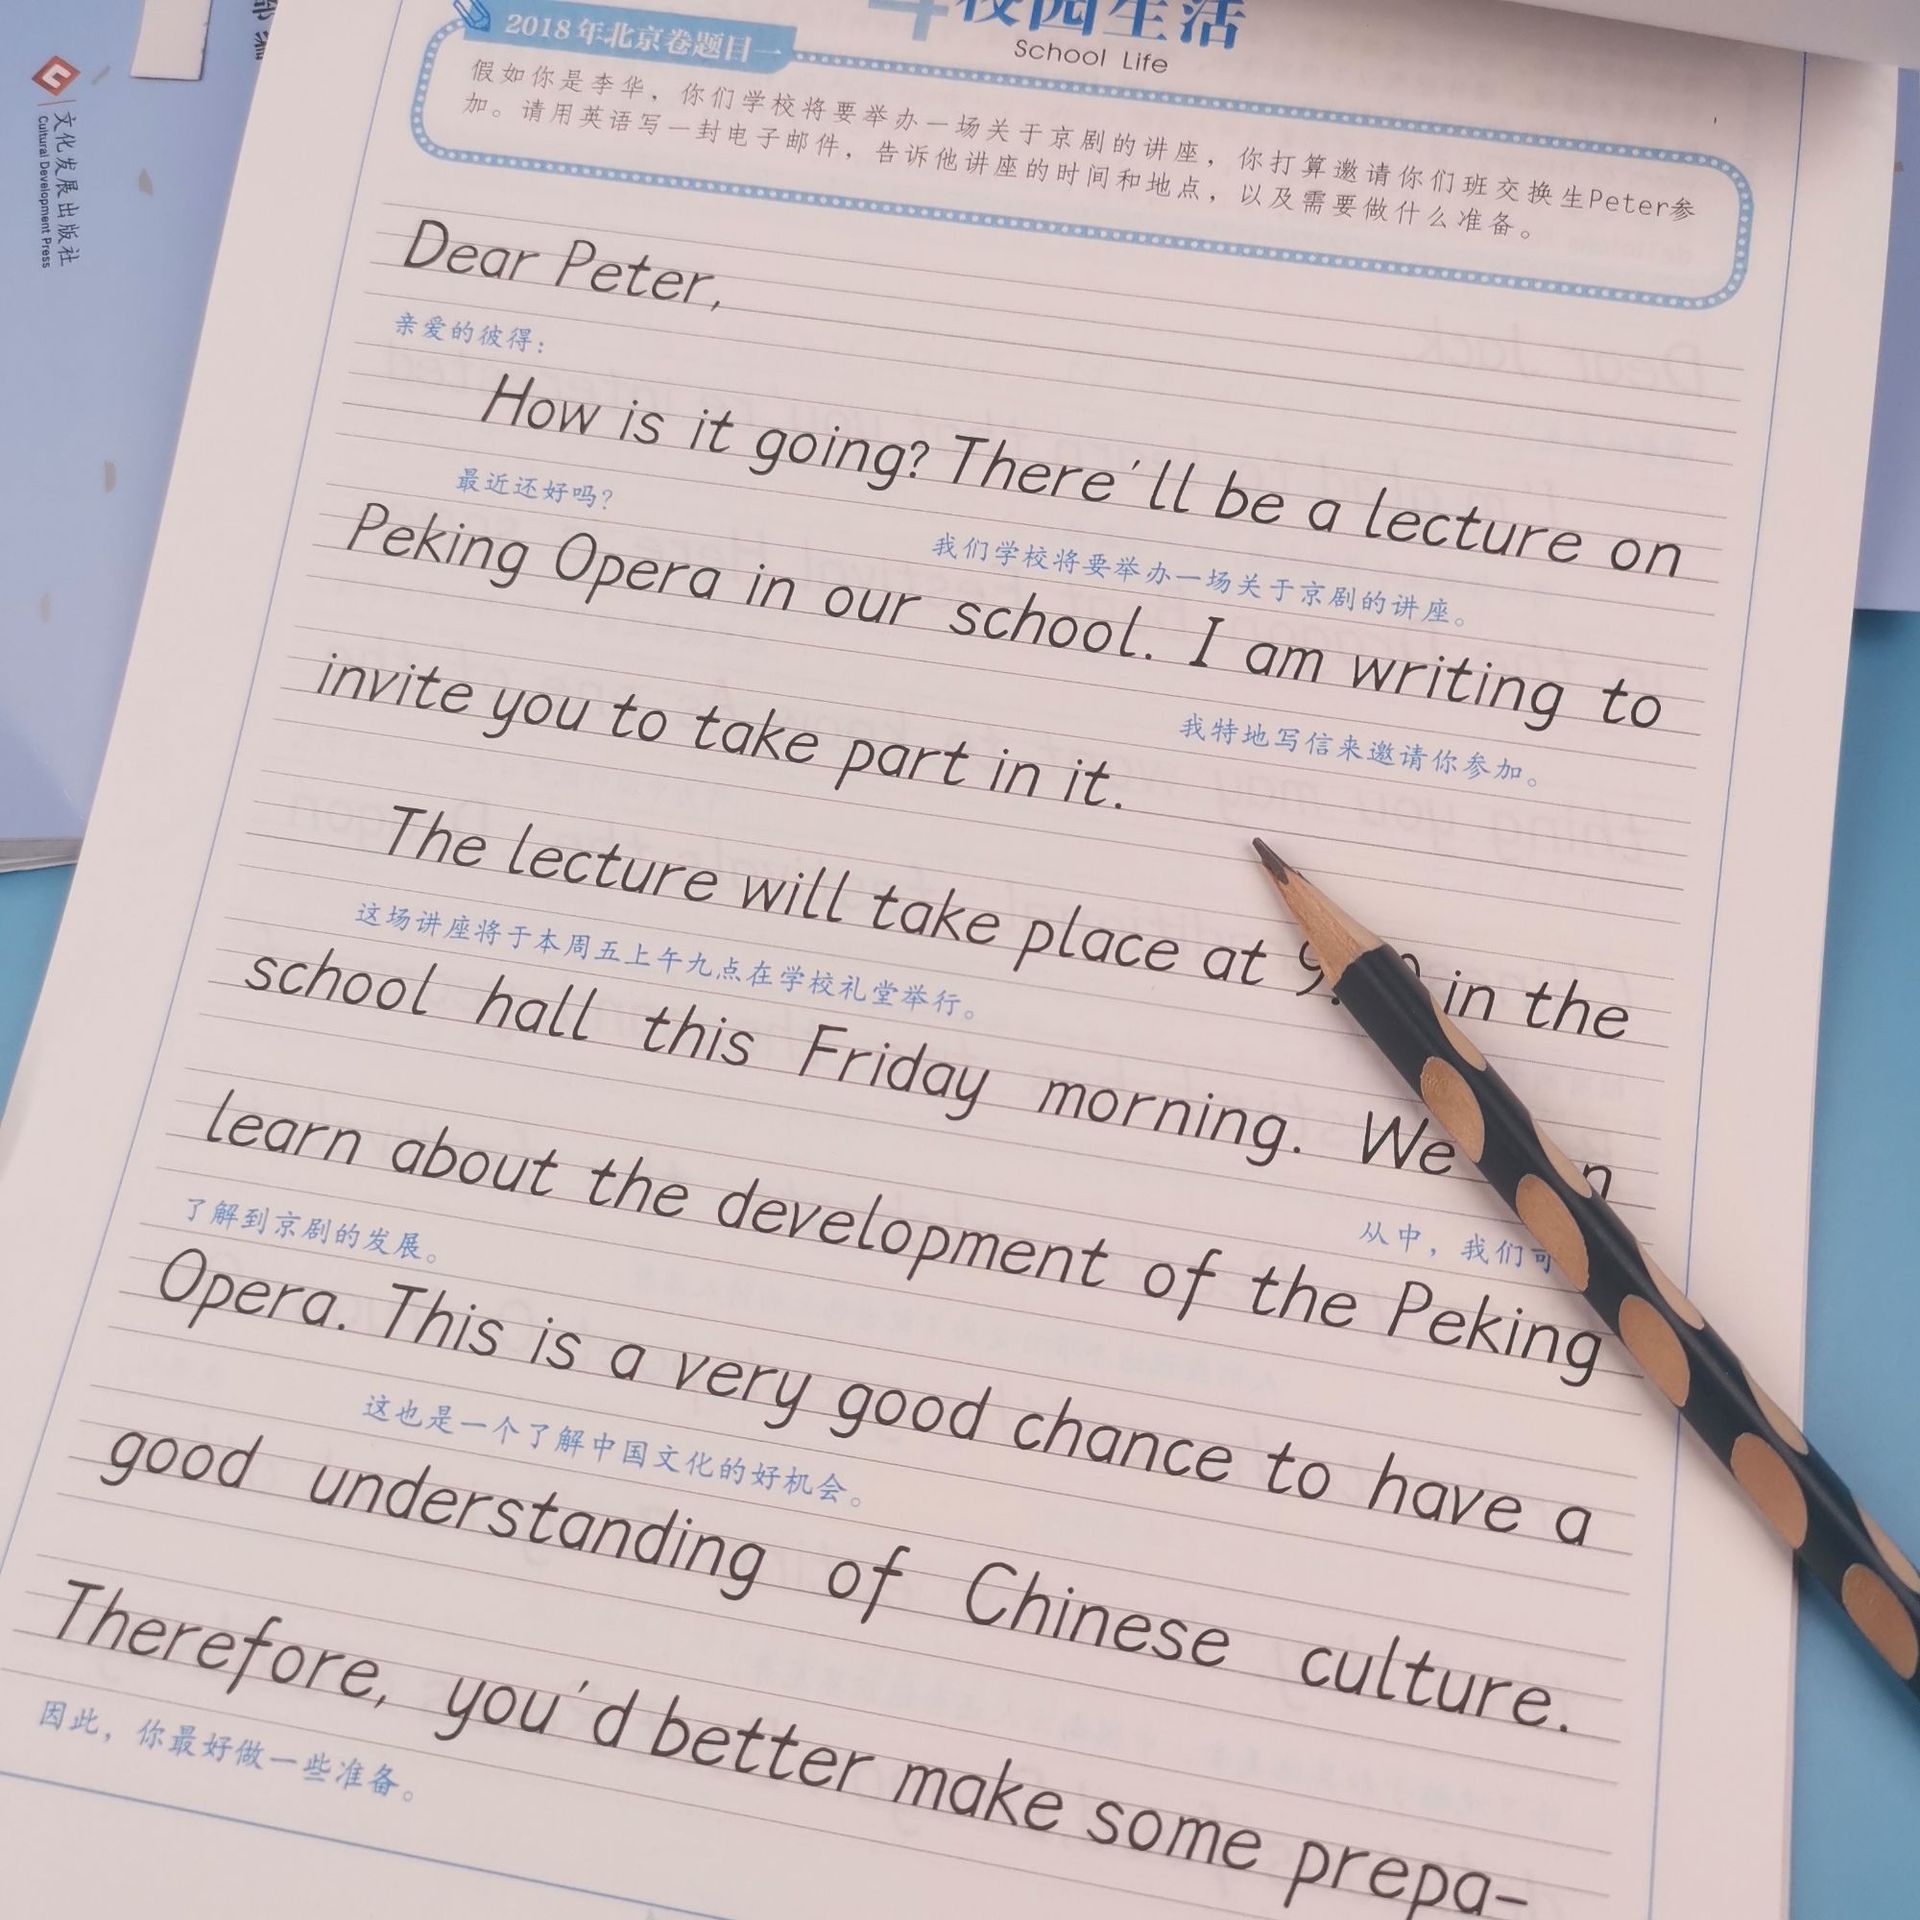 文化发展出版社
Cultural Development Press
校园生活
School Life
2018年北京卷题目一
假如你是李华，你们学校将要举办一场关于京剧的讲座，你打算邀请你们班交换生Peter参
加。请用英语写一封电子邮件，告诉他讲座的时间和地点，以及需要做什么准备。
Dear Peter,
亲爱的彼得：
How is it going? There'll be a lecture on
最近还好吗？
我们学校将要举办一场关于京剧的讲座。
Peking Opera in our school. I am writing to
我特地写信来邀请你参加。
invite you to take part in it.
The lecture will take place at in the
这场讲座将于本周五上午九点在学校礼堂举行。
school hall this Friday morning. We
从中，我们可
learn about the development of the Peking
了解到京剧的发展。
Opera. This is a very good chance to have a
这也是一个了解中国文化的好机会。
good understanding of Chinese culture.
Therefore, you'd better make some prepa-
因此，你最好做一些准备。